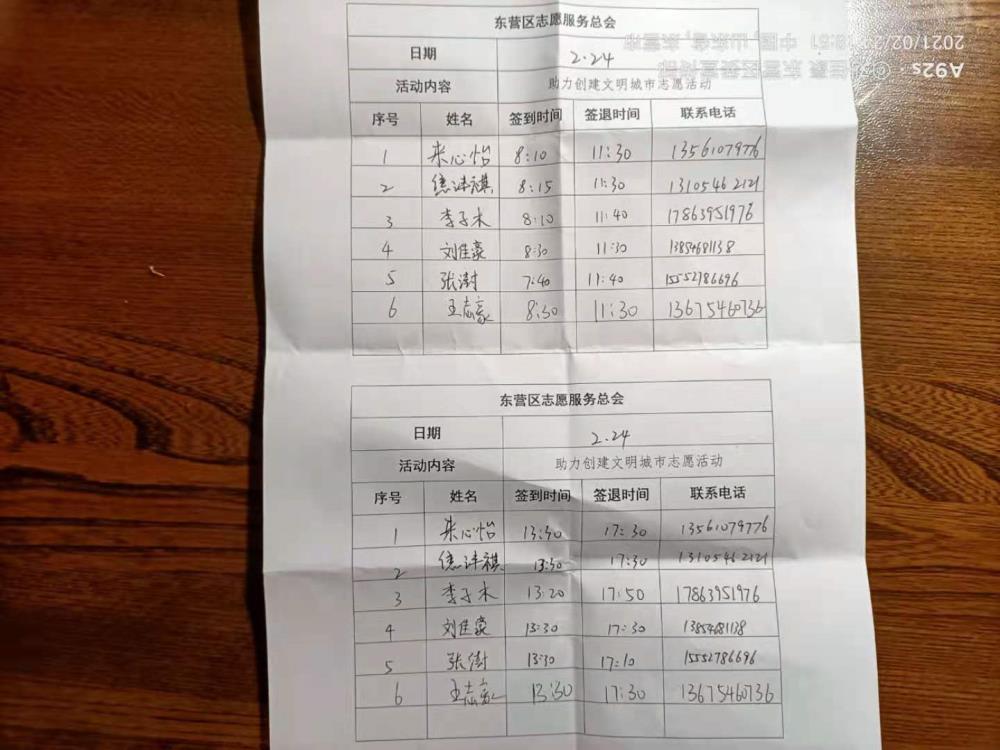 东营区志愿服务总会
日期 2.24
活动内容 助力创建文明城市志愿活动
序号 姓名 签到时间 签退时间 联系电话
1 朱心怡 8:10 11:30 13561079776
2 8:15 11:30 13105462121
3 李子木 8:10 11:40 17863951976
4 刘佳豪 8:30 11:30 13854681138
5 张澍 7:40 11:40 15552786696
6 王志豪 8:30 11:30 13675460736
东营区志愿服务总会
日期 2.24
活动内容 助力创建文明城市志愿活动
序号 姓名 签到时间 签退时间 联系电话
1 朱心怡 13:30 17:30 13561079776
2 13:30 17:30 13105462121
3 李子木 13:20 17:50 17863951976
4 刘佳豪 13:30 17:30 13854681138
5 张澍 13:30 17:10 15552786696
6 王志豪 13:30 17:30 13675460736
A92s